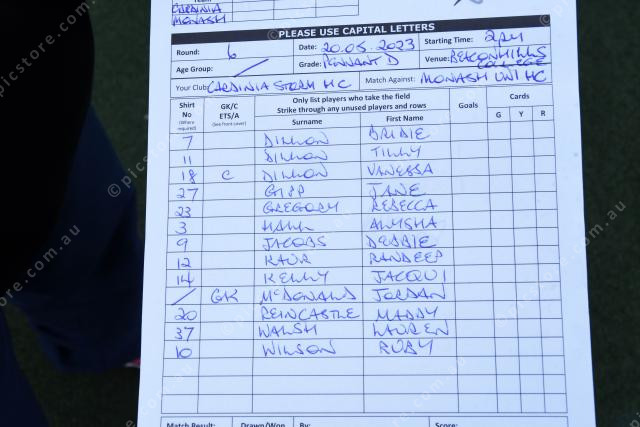 Team
CARDINIA
MONASH
PLEASE USE CAPITAL LETTERS
Round: 6 Date: 20.05.2023 Starting Time: 2PM
Age Group: / Grade: PENNANT D Venue: BEACONHILLS COLLEGE
Your Club: CARDINIA STORM HC Match Against: MONASH UNI HC
Shirt No (Where required) GK/C ETS/A (See front cover) Only list players who take the field Strike through any unused players and rows Goals Cards
Surname First Name G Y R
7 DILLON BRIDIE
11 DILLON TILLY
18 C DILLON VANESSA
27 GIPP JANE
23 GREGORY REBECCA
3 HALL ALYSHA
9 JACOBS DEBBIE
12 KAUR RANDEEP
14 KELLY JACQUI
/ GK MCDONALD JORDAN
20 REINCASTLE MADDY
37 WALSH LAUREN
10 WILSON RUBY
Match Result: Drawn/Won By: Score: